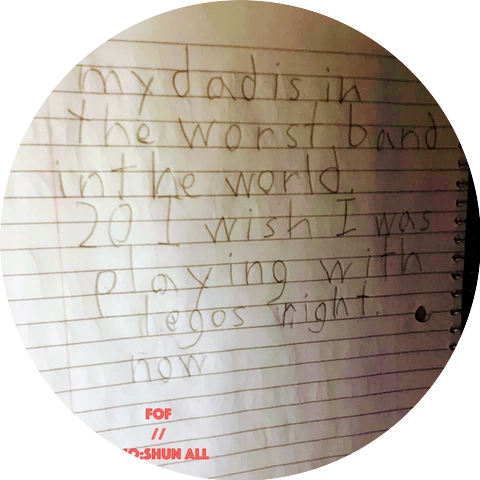 my dad is in
the worst band
in the world.
20 I wish I was
playing with
legos right.
now
FOF
//
:SHUN ALL